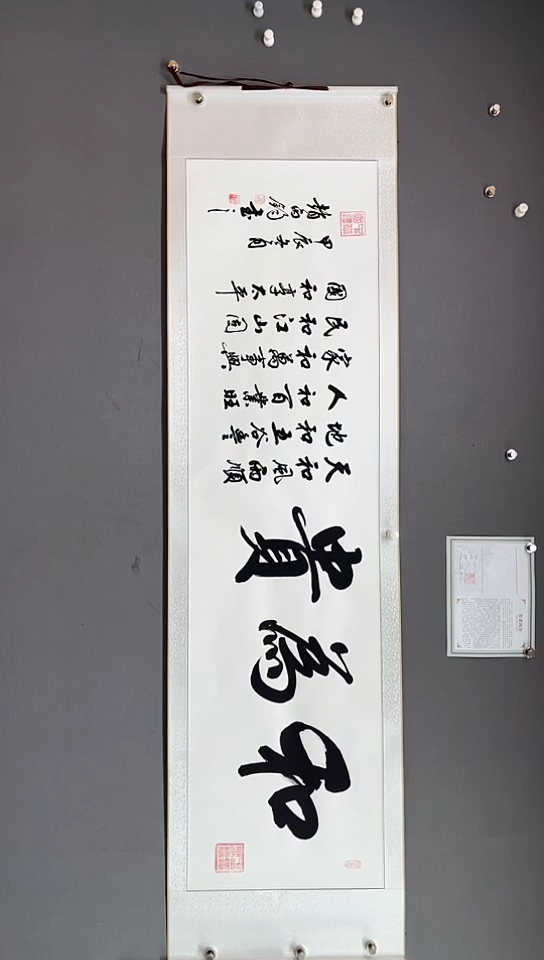 和為貴
天和風雨順
地和五谷豐
人和百業旺
家和萬事興
民和江山固
國和享太平
甲辰冬月